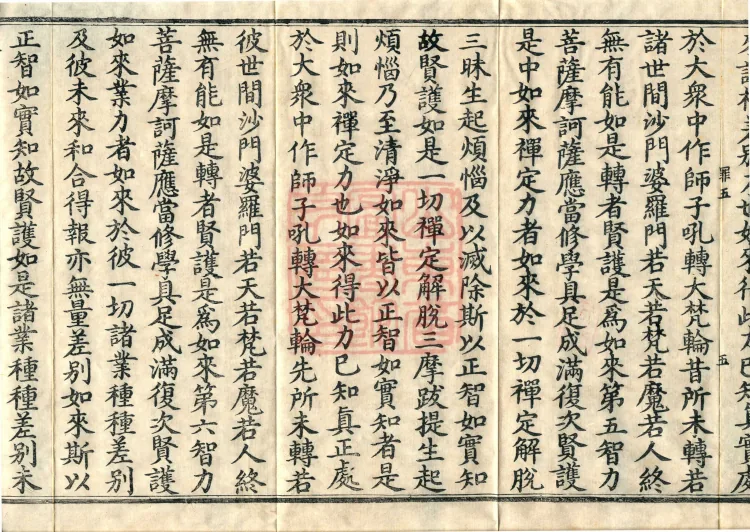 於大衆中作師子吼轉大梵輪昔所未轉若
罪五 五
諸世間沙門婆羅門若天若梵若魔若人終
無有能如是轉者賢護是爲如來第五智力
菩薩摩訶薩應當修學具足成滿復次賢護
是中如來禪定力者如來於一切禪定解脫
三昧生起煩惱及以滅除斯以正智如實知
故賢護如是一切禪定解脫三摩跋提生起
煩惱乃至清淨如來皆以正智如實知者是
則如來禪定力也如來得此力已知眞正處
於大衆中作師子吼轉大梵輪先所未轉若
彼世間沙門婆羅門若天若梵若魔若人終
無有能如是轉者賢護是爲如來第六智力
菩薩摩訶薩應當修學具足成滿復次賢護
如來業力者如來於彼一切諸業種種差別
及彼未來和合得報亦無量差別如來斯以
正智如實知故賢護如是諸業種種差別未